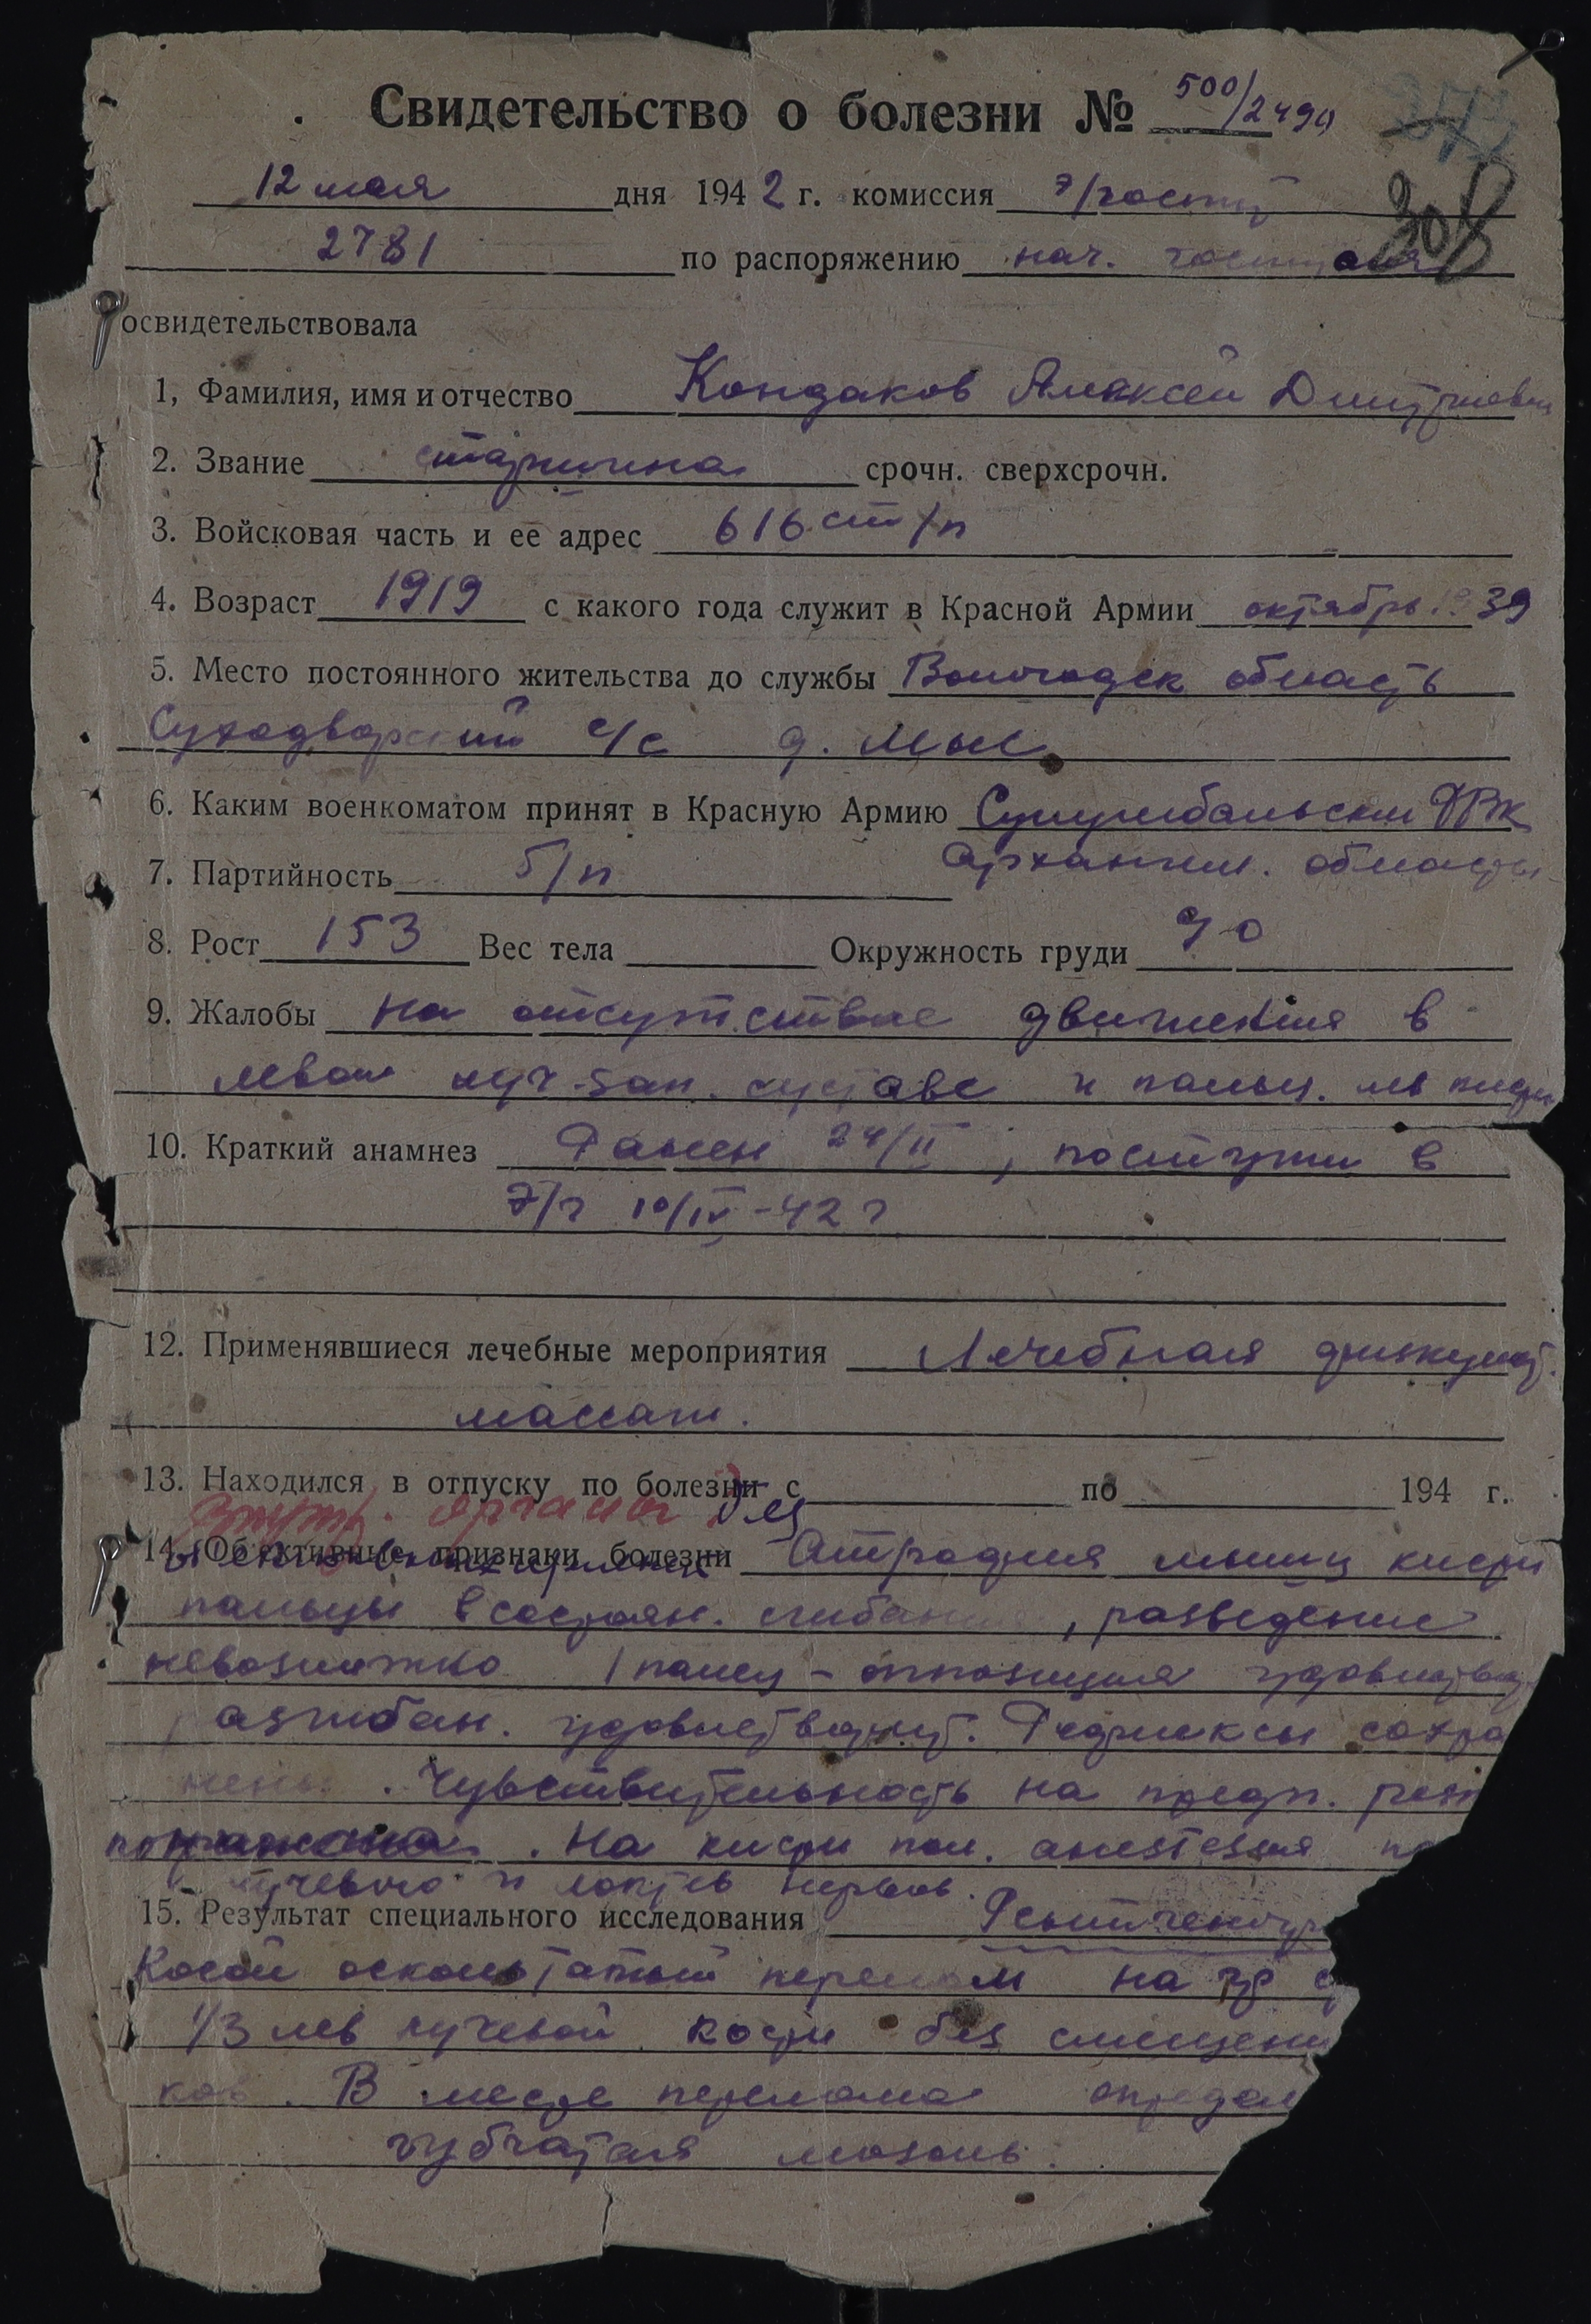 Свидетельство о болезни № 500/2490
308
12 мая дня 1942 г. комиссия э/госпит
2781 по распоряжению нач. госпиталя
освидетельствовала
1, Фамилия, имя и отчество Кондаков Алексей Дмитриевич
2. Звание старшина срочн. сверхсрочн.
3. Войсковая часть и ее адрес 616 ст/п
4. Возраст 1919 с какого года служит в Красной Армии октябрь 1939
5. Место постоянного жительства до службы Вологодск область
Суходворский с/с д. Мыс
6. Каким военкоматом принят в Красную Армию РВК
7. Партийность б/п Архангел. область
8. Рост 153 Вес тела Окружность груди 90
9. Жалобы на отсутствие движения в
левом луч-зап. суставе и пальц. лев кисти
10. Краткий анамнез Ранен 24/II, поступил в
э/г 10/IV-42 г
12. Применявшиеся лечебные мероприятия Лечебная физкульт.
массаж.
13. Находился в отпуску по болезни с по 194 г.
Внутр. органы без
14. Об'ективные признаки болезни Атрофия мышц кисти
пальцы в состоян. сгибания, разведение
невозможно 1 палец - оппозиция удовлетвор.
разгибан. удовлетворит. Рефлексы сохра
нены. Чувствительность на предп.
. На кисти пол. анестезия
лучевого и локтев нервов.
15. Результат специального исследования Рентгеногр
Косой оскольчатый перелом на ур с
1/3 лев лучевой кости без смещени
ков. В месте перелома определ
губчатая мозоль.